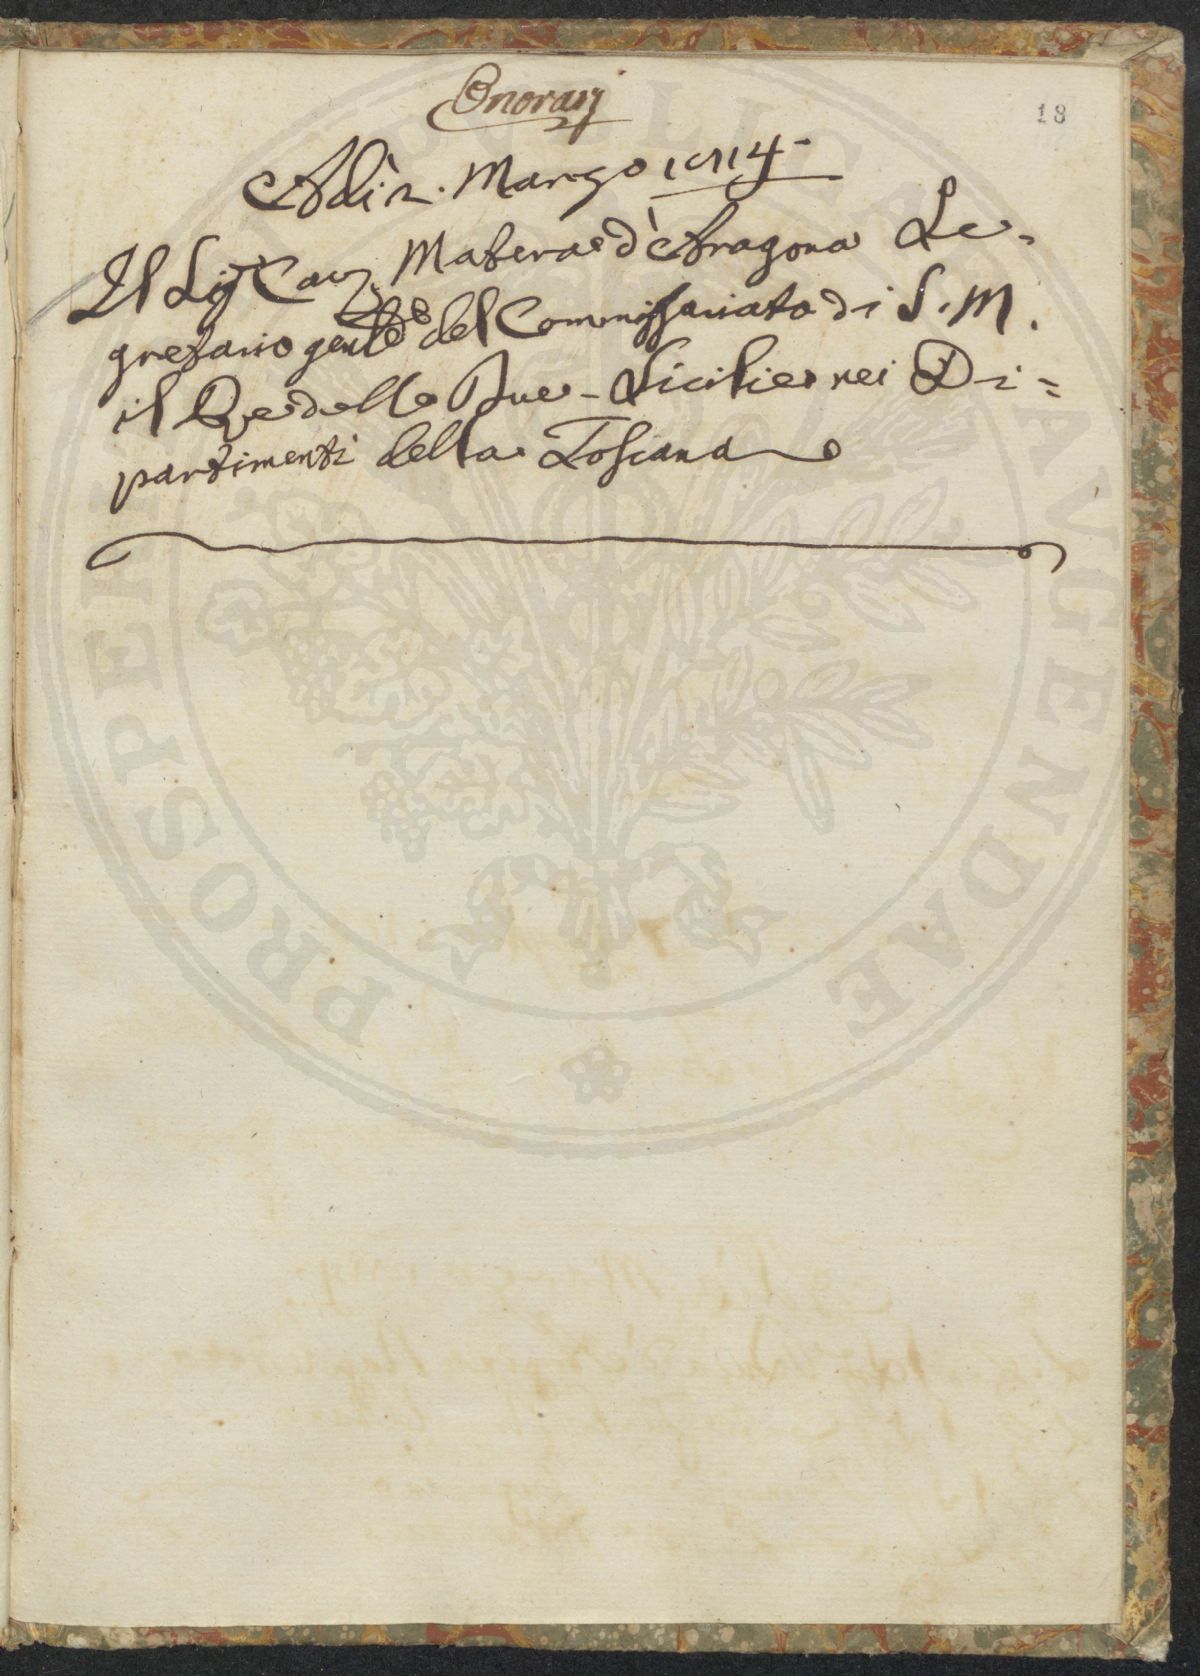 Onorarj
18
Adì 2. Marzo 1814.
Il Sig.r Cav.r Matera d'Aragona Se=
gretario gen.le del Commissariato di S. M.
il Re delle Due Sicilie nei Di=
partimenti della Toscana
PROSPER
VGENDAE